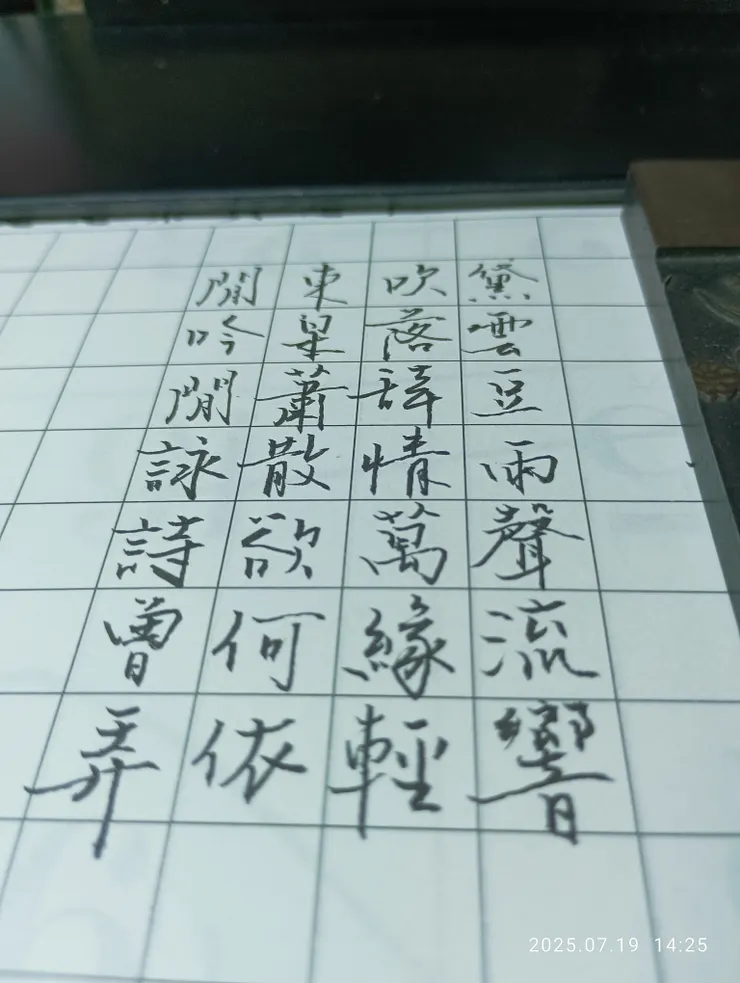 黛雲豆雨聲流響
吹落辞情萬緣輕
東皐蕭散欲何依
閒吟閒詠詩曾弄
2025.07.19 14:25